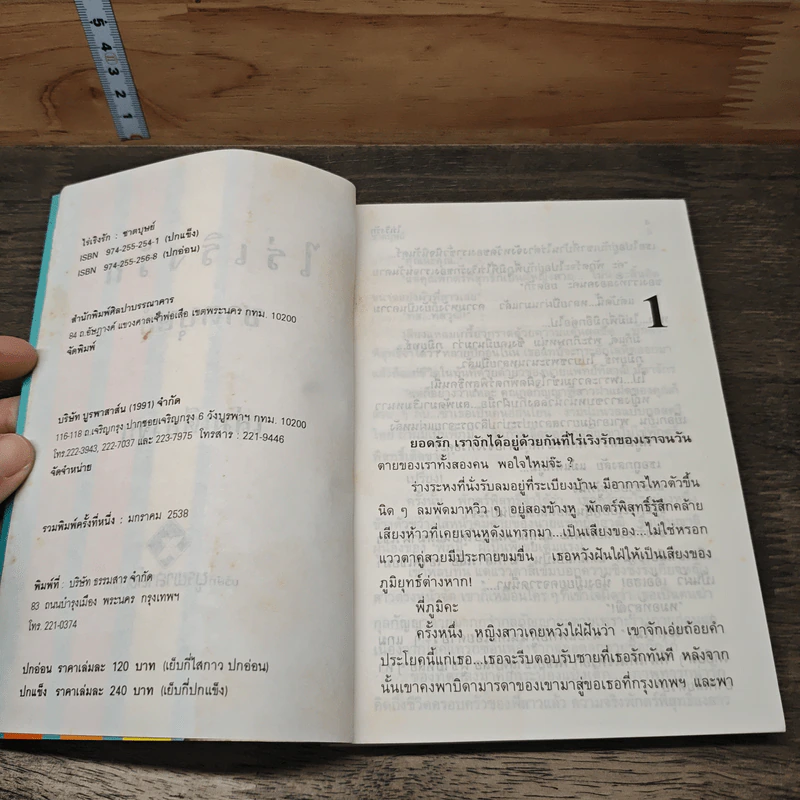 5 4 3 2 1
ไร่เริงรัก : ชาตบุษย์
ISBN 974-255-254-1 (ปกแข็ง)
ISBN 974-255-256-8 (ปกอ่อน)
สำนักพิมพ์ศิลปาบรรณาคาร
84 ถ.อัษฎางค์ แขวงศาลเจ้าพ่อเสือ เขตพระนคร กทม. 10200
จัดพิมพ์
บริษัท บูรพาสาส์น (1991) จำกัด
116-118 ถ.เจริญกรุง ปากซอยเจริญกรุง 6 วังบูรพาฯ กทม. 10200
โทร.222-3943, 222-7037 และ 223-7975 โทรสาร : 221-9446
จัดจำหน่าย
รวมพิมพ์ครั้งที่หนึ่ง : มกราคม 2538
พิมพ์ที่ : บริษัท ธรรมสาร จำกัด
83 ถนนบำรุงเมือง พระนคร กรุงเทพฯ
โทร. 221-0374
ปกอ่อน ราคาเล่มละ 120 บาท (เย็บกี่ไสกาว ปกอ่อน)
ปกแข็ง ราคาเล่มละ 240 บาท (เย็บกี่ปกแข็ง)
1
ยอดรัก เราจักได้อยู่ด้วยกันที่ไร่เริงรักของเราจนวัน
ตายของเราทั้งสองคน พอใจไหมจ๊ะ ?
ร่างระหงที่นั่งรับลมอยู่ที่ระเบียงบ้าน มีอาการไหวตัวขึ้น
นิด ๆ ลมพัดมาหวิว ๆ อยู่สองข้างหู พักตร์พิสุทธิ์รู้สึกคล้าย
เสียงห้าวที่เคยเจนหูดังแทรกมา...เป็นเสียงของ...ไม่ใช่หรอก
แววตาคู่สวยมีประกายขมขื่น เธอหวังฝันใฝ่ให้เป็นเสียงของ
ภูมิยุทธ์ต่างหาก!
พี่ภูมิคะ
ครั้งหนึ่ง หญิงสาวเคยหวังใฝ่ฝันว่า เขาจักเอ่ยถ้อยคำ
ประโยคนี้แก่เธอ...เธอจะรีบตอบรับชายที่เธอรักทันที หลังจาก
นั้นเขาคงพาบิดามารดาของเขามาสู่ขอเธอที่กรุงเทพฯ และพา